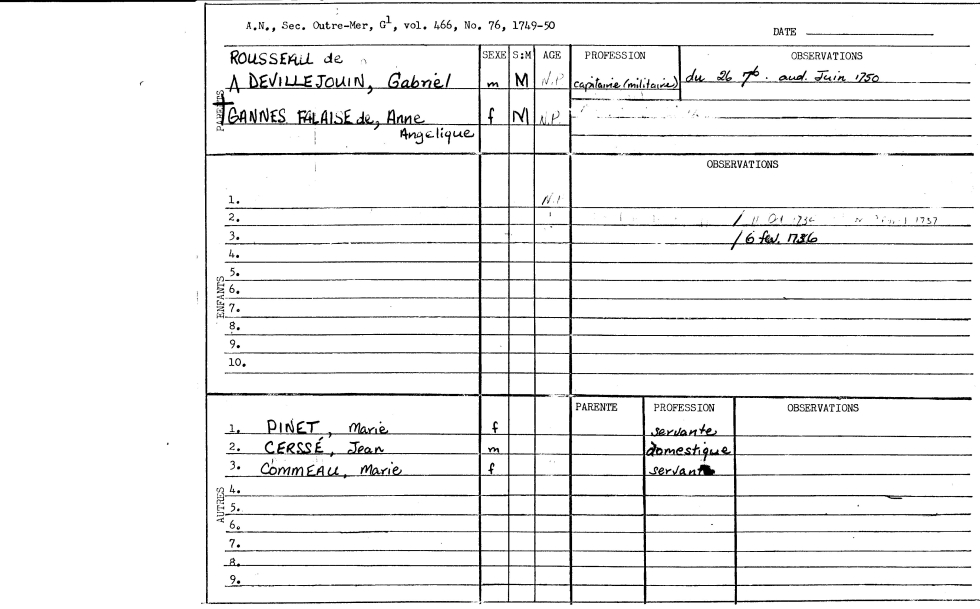 A.N., Sec. Outre-Mer, G1, vol. 466, No. 76, 1749-50
DATE
PARENTS
SEXE S:M AGE PROFESSION OBSERVATIONS
ROUSSEAU de
A DEVILLEJOUIN, Gabriel m M N.P capitaine (militaire) du 26 7b. aud. Juin 1750
GANNES FALAISE de, Anne f M N.P
Angelique
OBSERVATIONS
ENFANTS
1.
2. 1737
3. / 6 fev. 1736
4.
5.
6.
7.
8.
9.
10.
PARENTE PROFESSION OBSERVATIONS
AUTRES
1. PINET, Marie f servante
2. CERSSÉ, Jean m domestique
3. COMMEAU, Marie f servante
4.
5.
6.
7.
8.
9.